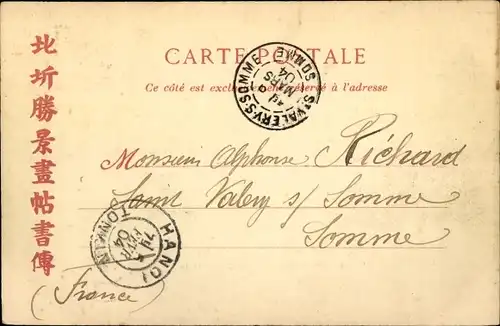 北圻勝景畫帖書傳
CARTE POSTALE
Ce côté est exclusivement réservé à l'adresse
ST VALERY-S-SOMME SOMME
MARS
04
Monsieur Alphonse Richard
Saint Valery s/ Somme
Somme
HANOI
TONKIN
FEVR
04
(France)